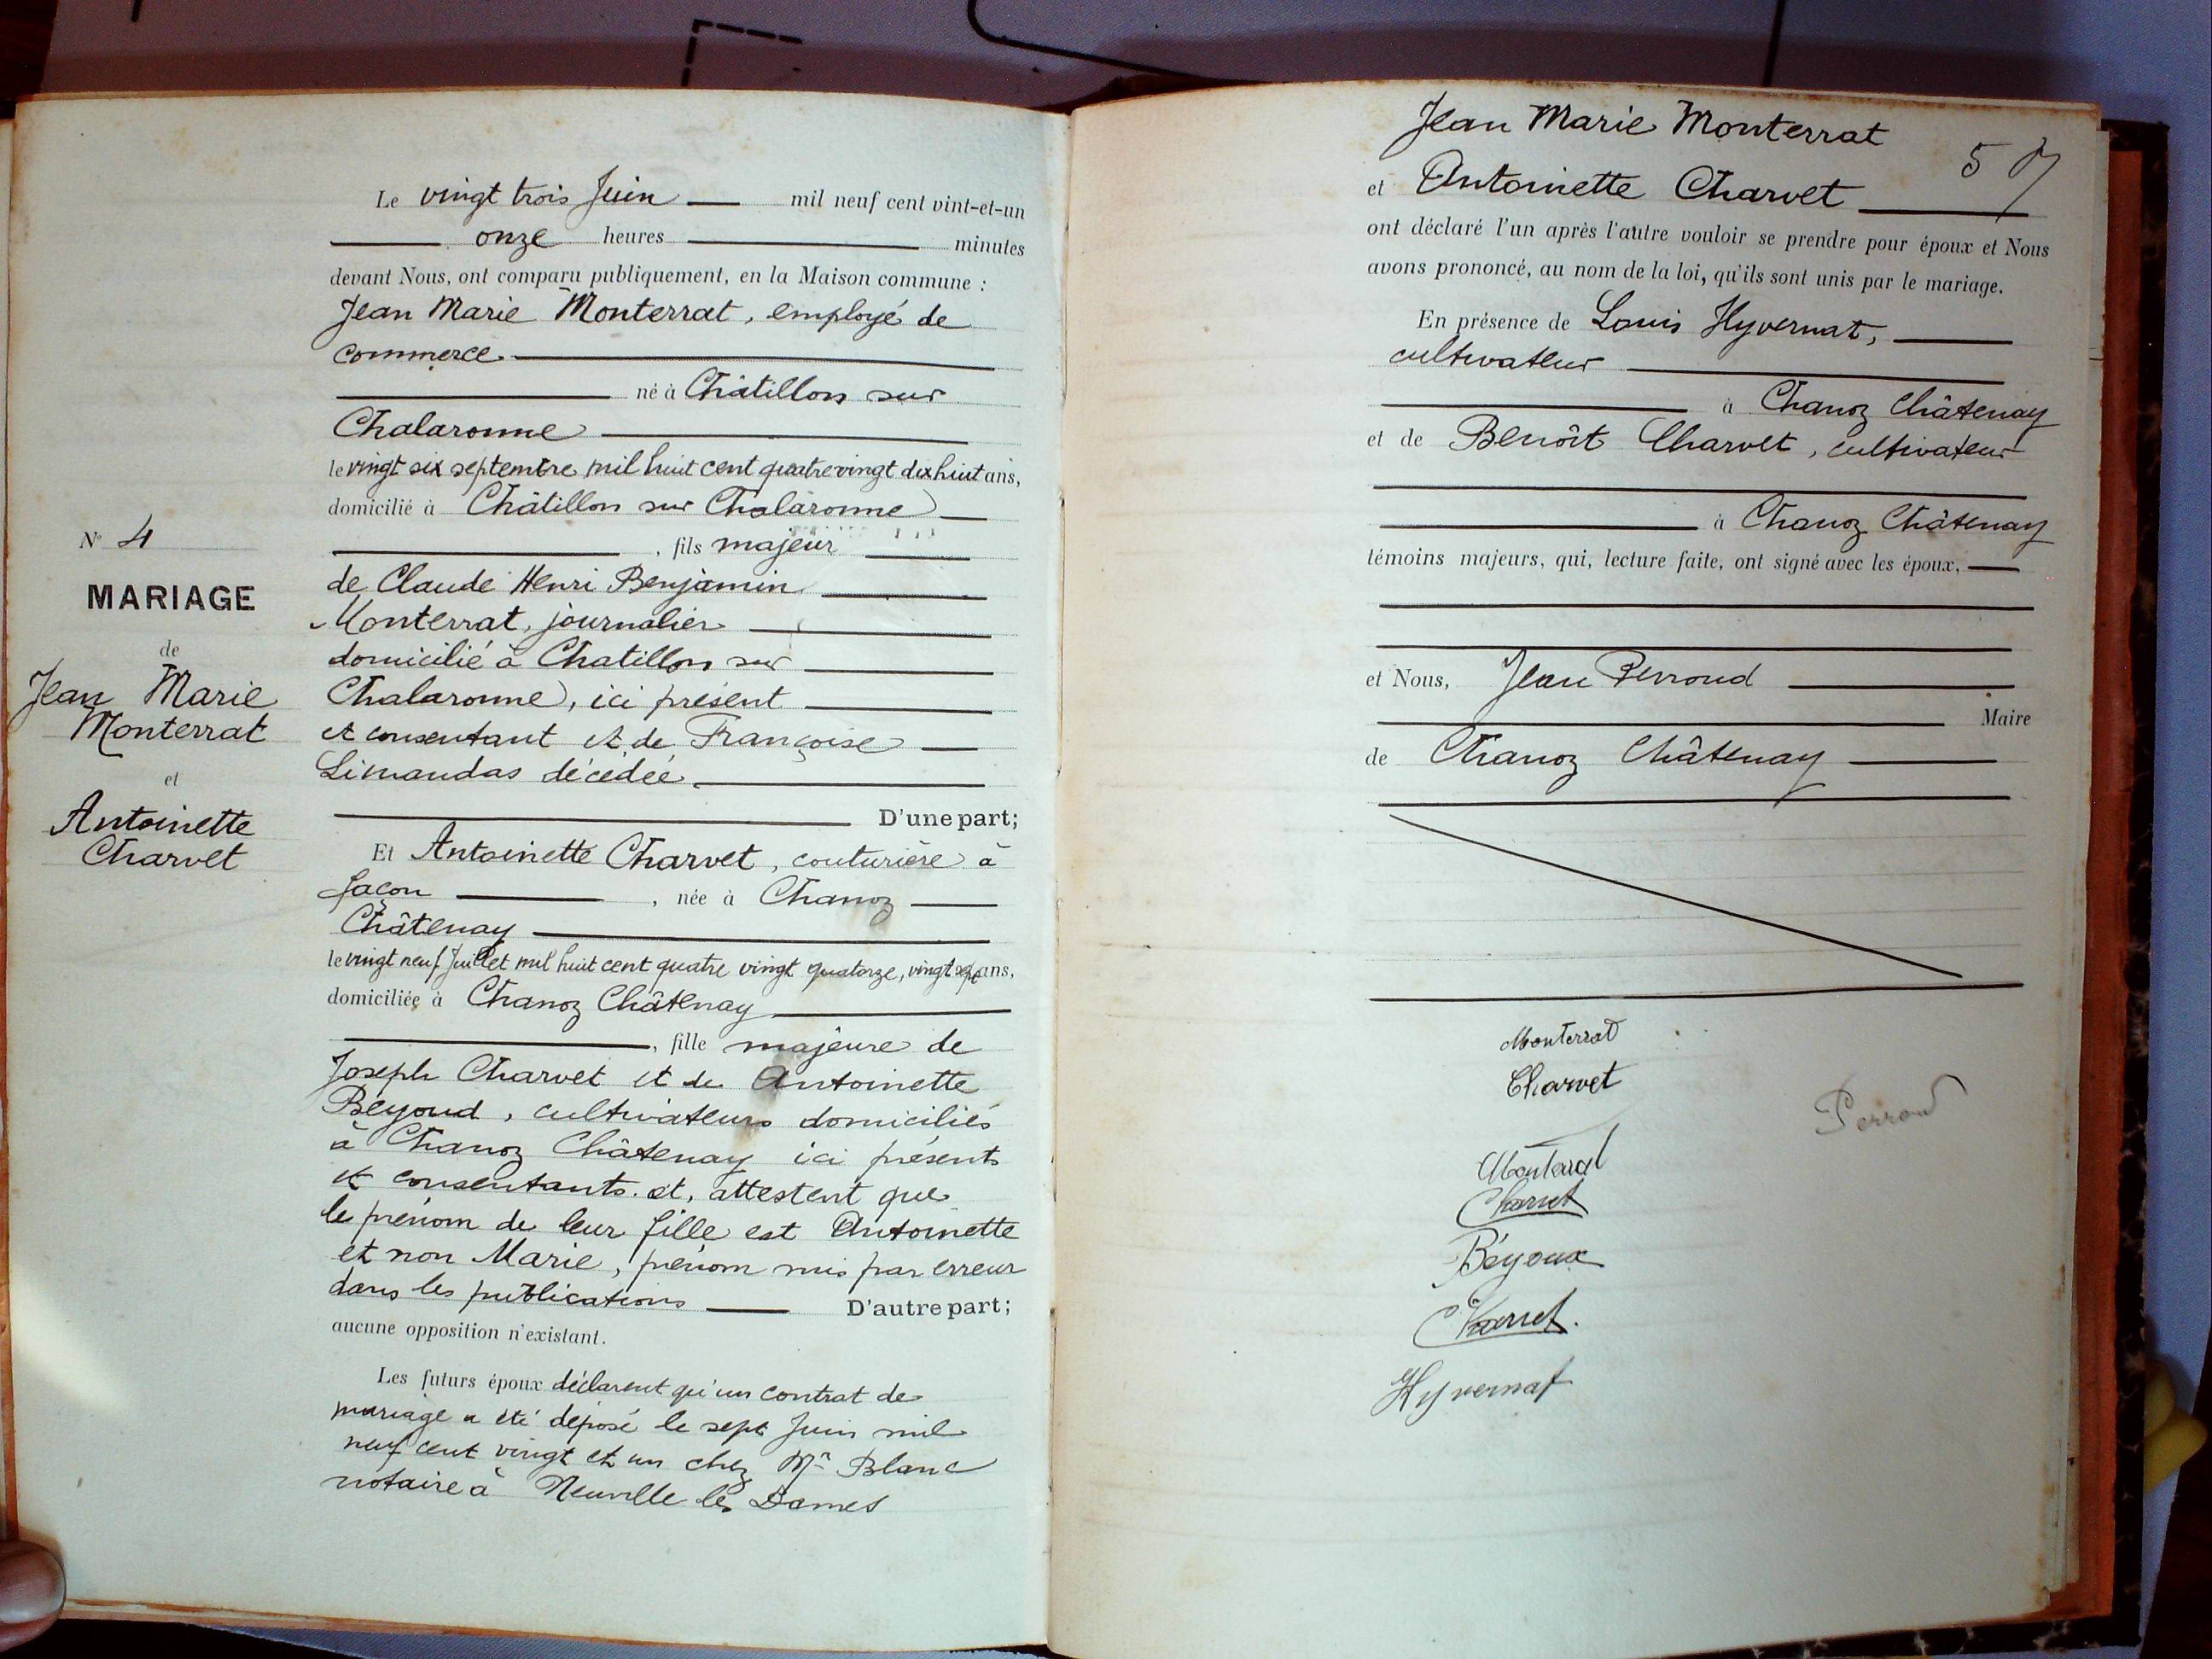 Le vingt trois Juin mil neuf cent vint-et-un
onze heures minutes
devant Nous, ont comparu publiquement, en la Maison commune :
Jean Marie Monterrat, employé de
commerce
né à Châtillon sur
Chalaronne
le vingt six septembre mil huit cent quatre vingt dix huit ans,
domicilié à Châtillon sur Chalaronne
, fils majeur
de Claude Henri Benjamin
Monterrat, journalier
domicilié à Chatillon sur
Chalaronne, ici présent
et consentant et de Françoise
Limandas décédée
D'une part;
Et Antoinette Charvet, couturière à
façon , née à Chanoz
Châtenay
le vingt neuf Juillet mil huit cent quatre vingt quatorze, vingt sept ans,
domiciliée à Chanoz Châtenay
, fille majeure de
Joseph Charvet et de Antoinette
Béyoud, cultivateurs domiciliés
à Chanoz Châtenay ici présents
et consentants et, attestent que
le prénom de leur fille est Antoinette
et non Marie, prénom mis par erreur
dans les publications D'autre part;
aucune opposition n'existant.
Les futurs époux déclarent qu'un contrat de
mariage a été déposé le sept Juin mil
neuf cent vingt et un chez Mᵉ Blanc
notaire à Neuville les Dames
N° 4
MARIAGE
de
Jean Marie
Monterrat
et
Antoinette
Charvet
Jean Marie Monterrat
5
et Antoinette Charvet
ont déclaré l'un après l'autre vouloir se prendre pour époux et Nous
avons prononcé, au nom de la loi, qu'ils sont unis par le mariage.
En présence de Louis Hyvernat,
cultivateur
à Chanoz Châtenay
et de Benoît Charvet, cultivateur
à Chanoz Châtenay
témoins majeurs, qui, lecture faite, ont signé avec les époux,
et Nous, Jean Perroud
Maire
de Chanoz Châtenay
Monterrat
Charvet
Perroud
Monterrat
Charvet
Béyoux
Charvet.
Hyvernat